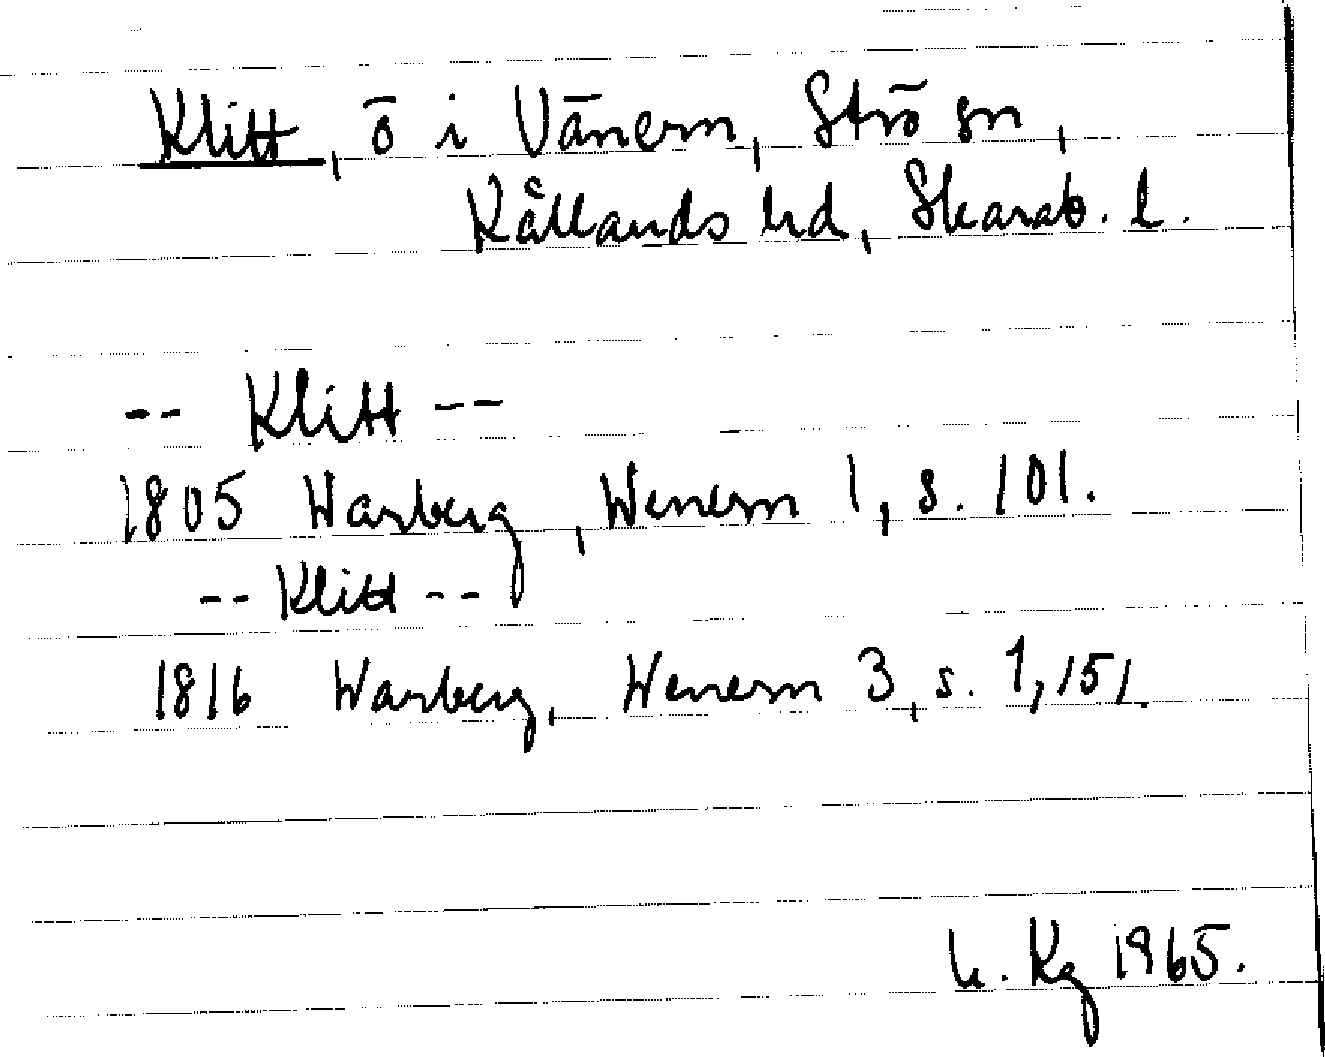 Klitt, ö i Vänern, Strö sn,
Kållands hd, Skarab. l.
-- Klitt --
1805 Warberg, Wenern 1, s. 101.
-- Klitt --
1816 Warberg, Wenern 3, s. 1, 151.
Kg 1965.